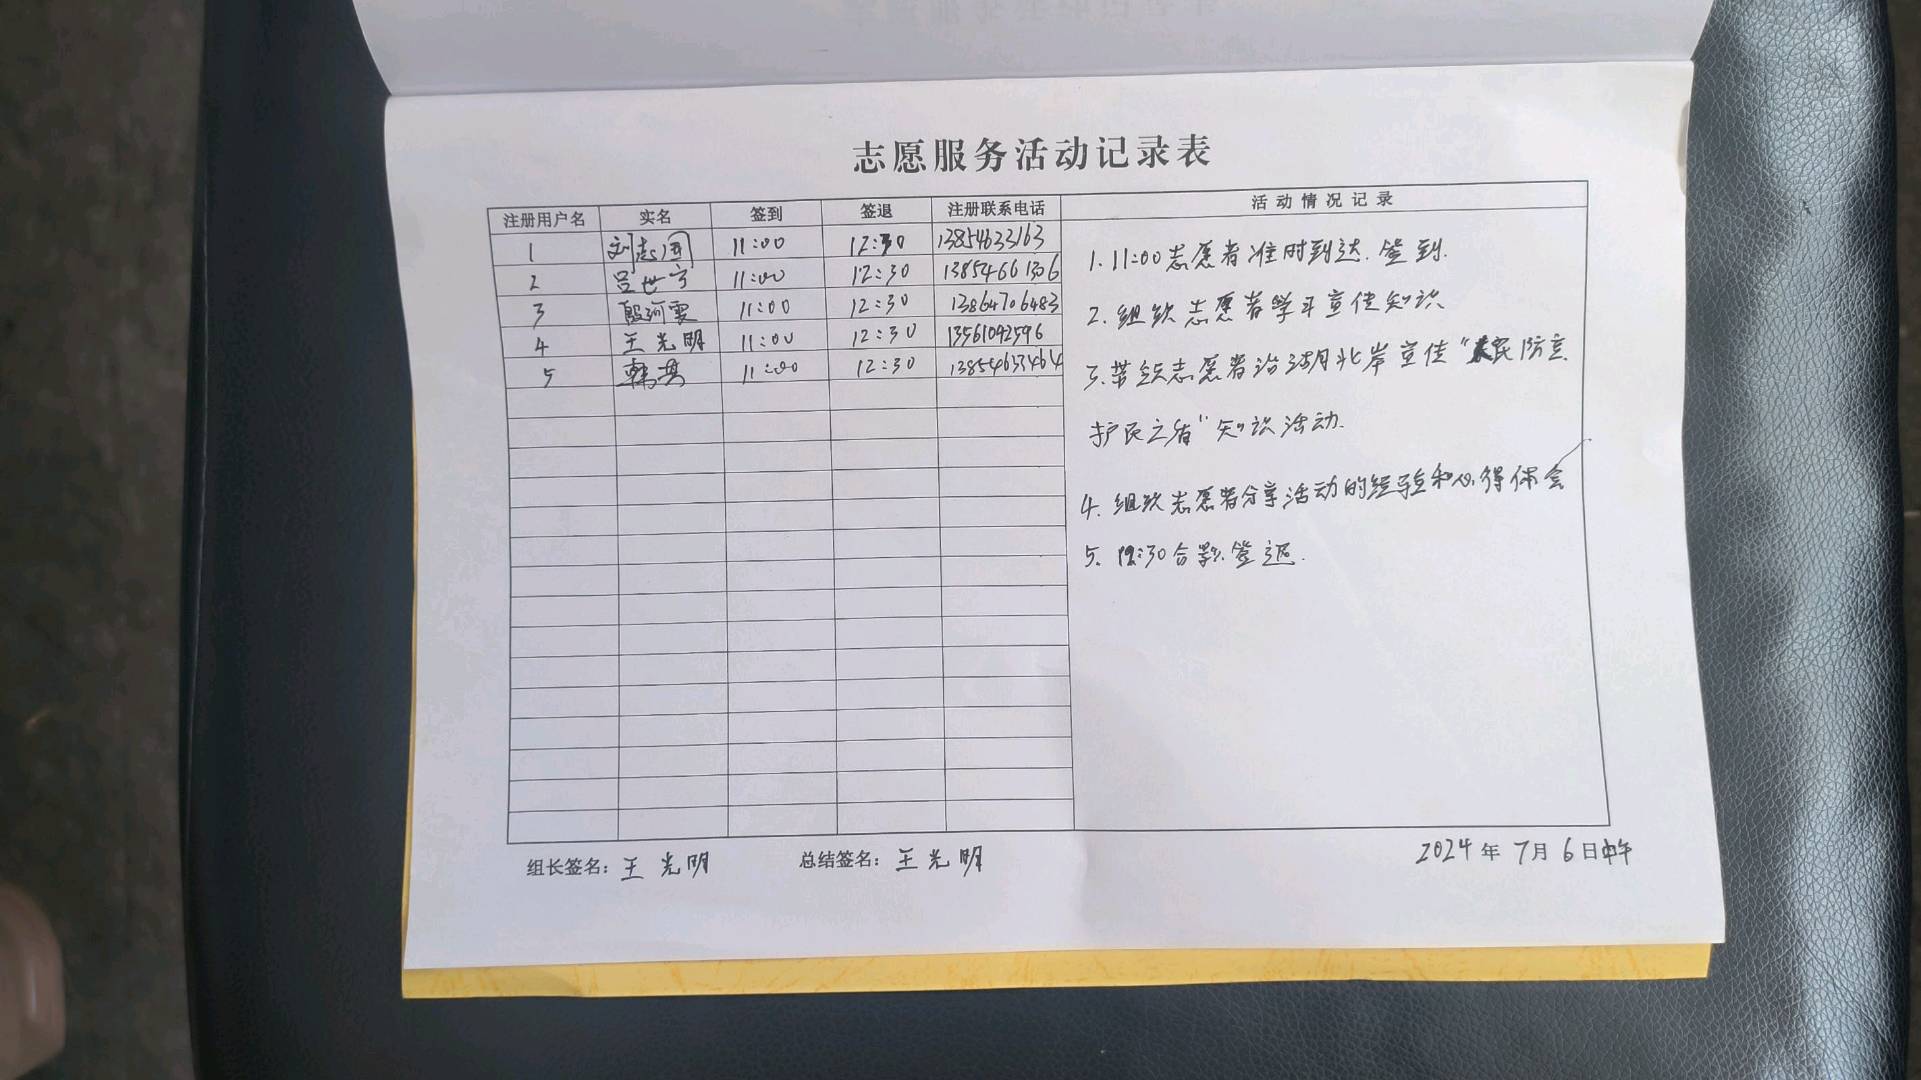 志愿服务活动记录表
注册用户名 实名 签到 签退 注册联系电话 活动情况记录
1 刘志国 11:00 12:30 13854633163
2 吕世宁 11:00 12:30 13854661306
3 殷河雯 11:00 12:30 13864706483
4 王光明 11:00 12:30 13561092596
5 韩其 11:00 12:30 13854633464
1. 11:00志愿者准时到达.签到.
2. 组织志愿者学习宣传知识
3.带领志愿者沿湖北岸宣传“ 民防意
护民之盾”知识活动.
4. 组织志愿者分享活动的经验和心得体会
5. 12:30合影.签退.
组长签名：王光明 总结签名：王光明 2024年7月6日中午